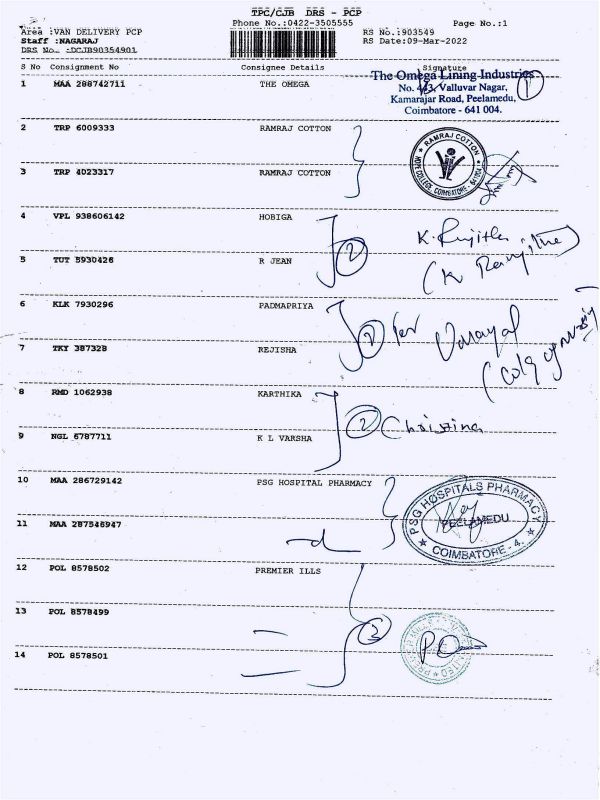 TPC/CJB DRS - PCP
Phone No.:0422-3505555 Page No.:1
Area :VAN DELIVERY PCP RS No.:903549
Staff :NAGARAJ RS Date:09-Mar-2022
DRS No. :DCJB90354901
S No Consignment No Consignee Details Signature
1 MAA 288742711 THE OMEGA
The Omega Lining Industries
No. 443, Valluvar Nagar,
Kamarajar Road, Peelamedu,
Coimbatore - 641 004.
1
2 TRP 6009333 RAMRAJ COTTON
RAMRAJ COTTON
HOPE COLLEGE, COIMBATORE - 641004
3 TRP 4023317 RAMRAJ COTTON
4 VPL 938606142 HOBIGA
2
5 TUT 5930426 R JEAN
6 KLK 7930296 PADMAPRIYA
2
7 TKY 387328 REJISHA
8 RMD 1062938 KARTHIKA
2 Christina
9 NGL 6787711 K L VARSHA
10 MAA 286729142 PSG HOSPITAL PHARMACY
PSG HOSPITALS PHARMACY
PEELAMEDU
COIMBATORE - 4.
11 MAA 287546947
12 POL 8578502 PREMIER ILLS
13 POL 8578499
3
14 POL 8578501